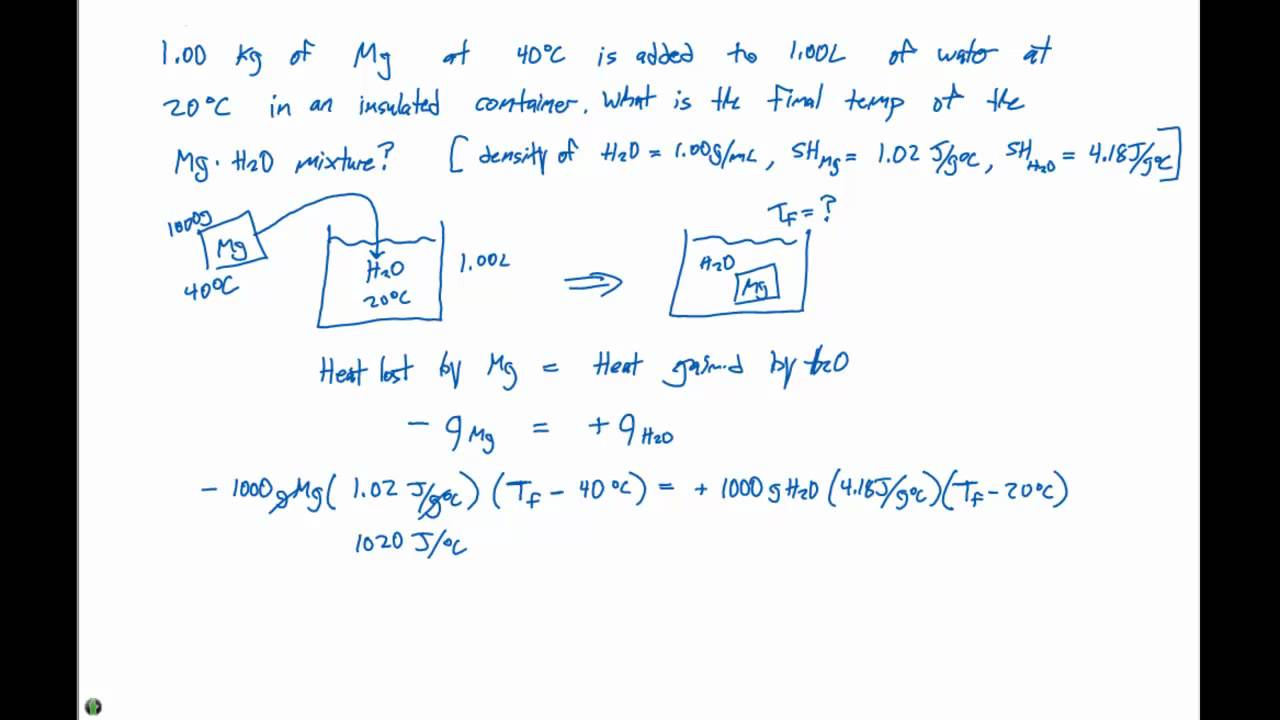 1.00 kg of Mg at 40°C is added to 1.00L of water at
20°C in an insulated container. What is the final temp of the
Mg·H₂O mixture? [density of H₂O = 1.00g/mL, SH_Mg = 1.02 J/g°C, SH_H₂O = 4.18J/g°C]
1000g
Mg
40°C
H₂O
20°C
1.00L
⇒
T_F = ?
H₂O
Mg
Heat lost by Mg = Heat gained by H₂O
- q_Mg = + q_H₂O
- 1000gMg(1.02 J/g°C)(T_F - 40°C) = + 1000gH₂O(4.18J/g°C)(T_F - 20°C)
1020 J/°C